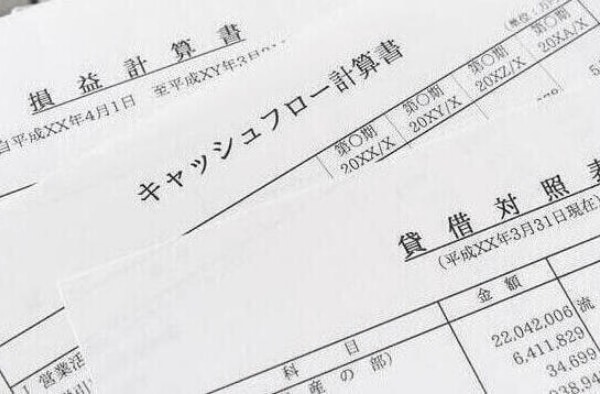 損益計算書
自平成XX年4月1日 至平成XY年3月31
キャッシュフロー計算書
(単位:万
第〇期 第〇期 第〇期 第〇期
20XX/X 20XY/X 20XZ/X 20XA/X
貸借対照表
(平成XX年3月31日現在)
科 目
金 額
産の部)
22,042,006
流
6,411,829
34,699
I 営業活